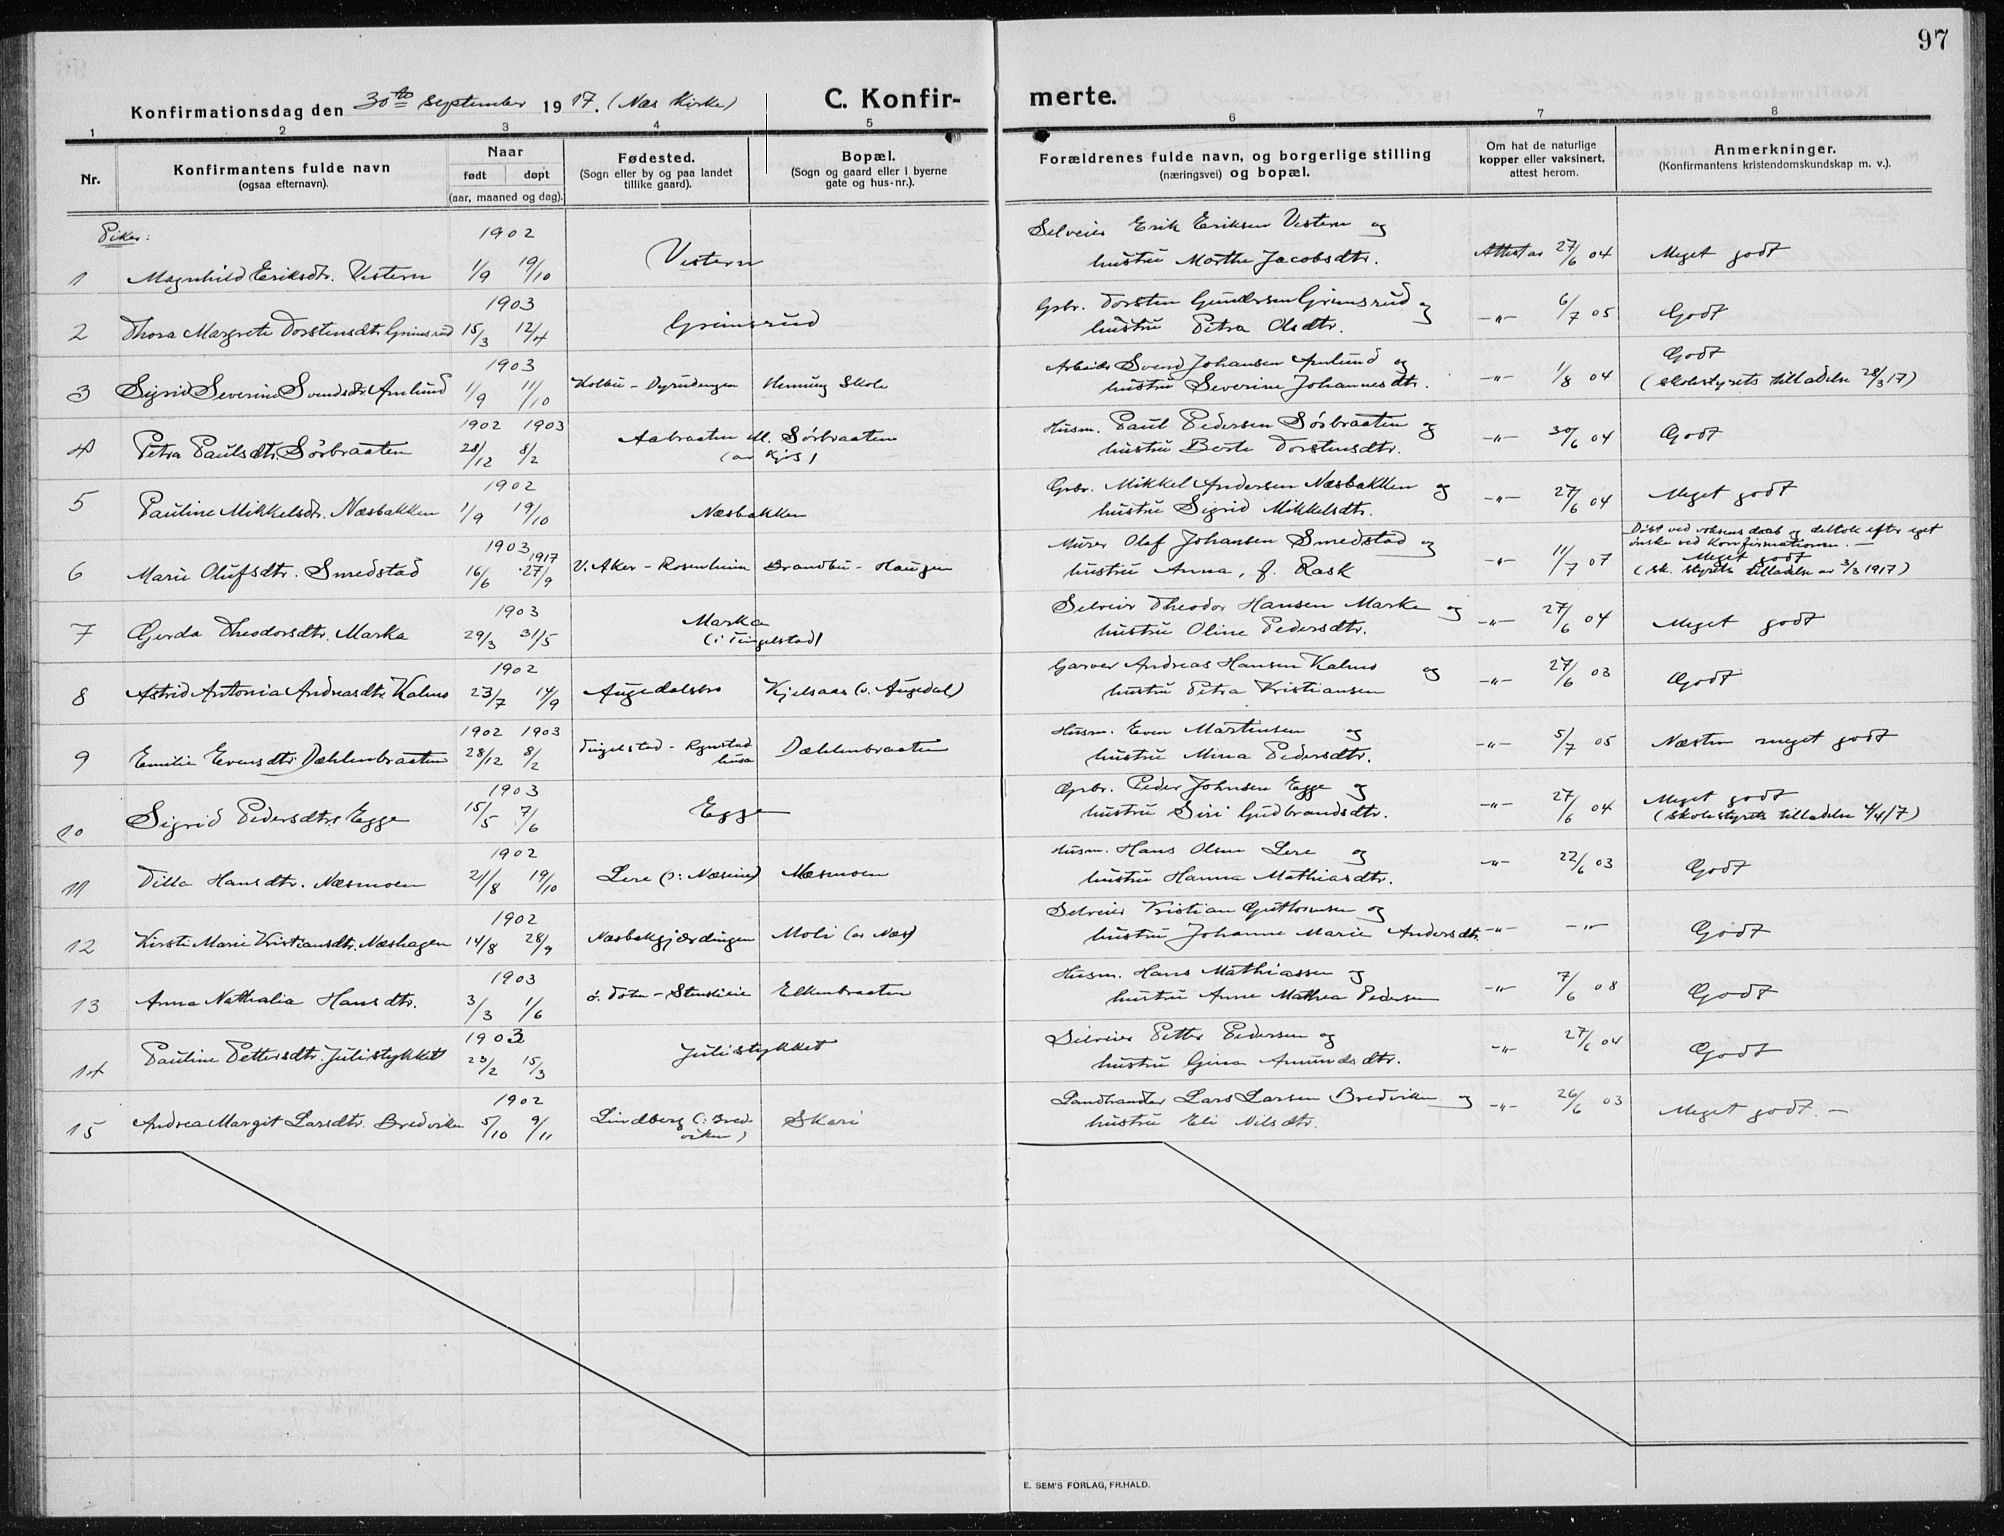 97
Konfirmationsdag den 30te September 1917. (Næs Kirke) C. Konfir- merte.
1 2 3 4 5 6 7 8
Nr. Konfirmantens fulde navn (ogsaa efternavn). Naar født døpt (aar, maaned og dag). Fødested. (Sogn eller by og paa landet tillike gaard). Bopæl. (Sogn og gaard eller i byerne gate og hus-nr.). Forældrenes fulde navn, og borgerlige stilling (næringsvei) og bopæl. Om hat de naturlige kopper eller vaksinert, attest herom. Anmerkninger. (Konfirmantens kristendomskundskap m. v.).
Piker:
1902 Selveier Erik Eriksen Vestern og
1 Magnhild Eriksdtr. Vestern 1/9 19/10 Vestern hustru Marthe Jacobsdtr. Attest av 27/6 04 Meget godt
1903 Gpbr. Torsten Gundersen Grimsrud og
2 Thora Margrete Torstensdtr. Grimsrud 15/3 12/4 Grimsrud hustru Petra Olsdtr. -"- 6/7 05 Godt
1903 Arbeider Svend Johansen Amlund og Godt
3 Sigrid Severine Svendsdtr. Amlund 1/9 11/10 Kolbu - Dyrudengen Henung Skole hustru Severine Johannesdtr. -"- 1/8 04 (skolestyrets tilladelse 28/3 17)
1902 1903 Husm. Paul Pedersen Sørbraaten og
4 Petra Paulsdtr. Sørbraaten 28/12 8/2 Aabraaten M. Sørbraaten hustru Berte Torstensdtr. -"- 30/6 04 Godt
1902 Gpbr. Mikkel Andersen Næsbakken og
5 Pauline Mikkelsdtr. Næsbakken 1/9 19/10 Næsbakken hustru Sigrid Mikkelsdtr. -"- 27/6 04 Meget godt
1903 1917 Murer Olaf Johansen Smedstad og Døbt ved voksens daab og deltok efter eget ønske ved Konfirmationen. -
6 Marie Olufsdtr. Smedstad 16/6 27/9 V. Aker - Rosenheim Brandbu - Haugen hustru Anna, f. Rask -"- 11/7 07 Meget godt (sk. styrets tilladelse av 3/3 1917)
1903 Selveier Theodor Hansen Marka og
7 Gerda Theodorsdtr. Marka 29/3 31/5 Marka (i Tingelstad) hustru Oline Pedersdtr. -"- 27/6 04 Meget godt
1902 Garver Andreas Hansen Kalmo og
8 Astrid Antonia Andreasdtr. Kalmo 23/7 14/9 Augedalsbro Kjelsaas (v. Augedal) hustru Petra Kristiansen -"- 27/6 03 Godt
1902 1903 Husm. Even Martinsen og
9 Emilie Evensdtr. Dæhlenbraaten 28/12 8/2 Tingelstad - Rynstad husa Dæhlenbraaten hustru Mina Pedersdtr. -"- 5/7 05 Næsten meget godt
1903 Gpbr. Peder Johnsen Egge og
10 Sigrid Pedersdtr. Egge 15/5 7/6 Egge hustru Siri Gudbrandsdtr. -"- 27/6 04 Meget godt (skolestyrets tilladelse 4/4 17)
1902 Husm. Hans Olsen Lere og
11 Tilla Hansdtr. Næsmoen 21/8 19/10 Lere (: Næseie) Næsmoen hustru Hanna Mathiasdtr. -"- 22/6 03 Godt
1902 Selveier Kristian Guttormsen og
12 Kirsti Marie Kristiansdtr. Næshagen 14/8 28/9 Næsbakgjærdingen Moli (av Næs) hustru Johanne Marie Andersdtr. -"- -"- Godt
1903 Husm. Hans Mathiassen og
13 Anna Nathalia Hansdtr. 3/3 1/6 Ø. Toten - Stenslieie Elkenbraaten hustru Anne Mathea Pedersen -"- 7/6 08 Godt
1903 Selveier Petter Pedersen og
14 Pauline Pettersdtr. Julistykket 23/2 15/3 Julistykket hustru Gina Amundsdtr. -"- 27/6 04 Godt
1902 Landhandler Lars Larsen Bredviken og
15 Andrea Margit Larsdtr. Bredviken 5/10 9/11 Lindberg (: Bredviken) Skari hustru Eli Nilsdtr. -"- 26/6 03 Meget godt. -
E. SEM'S FORLAG, FR.HALD.